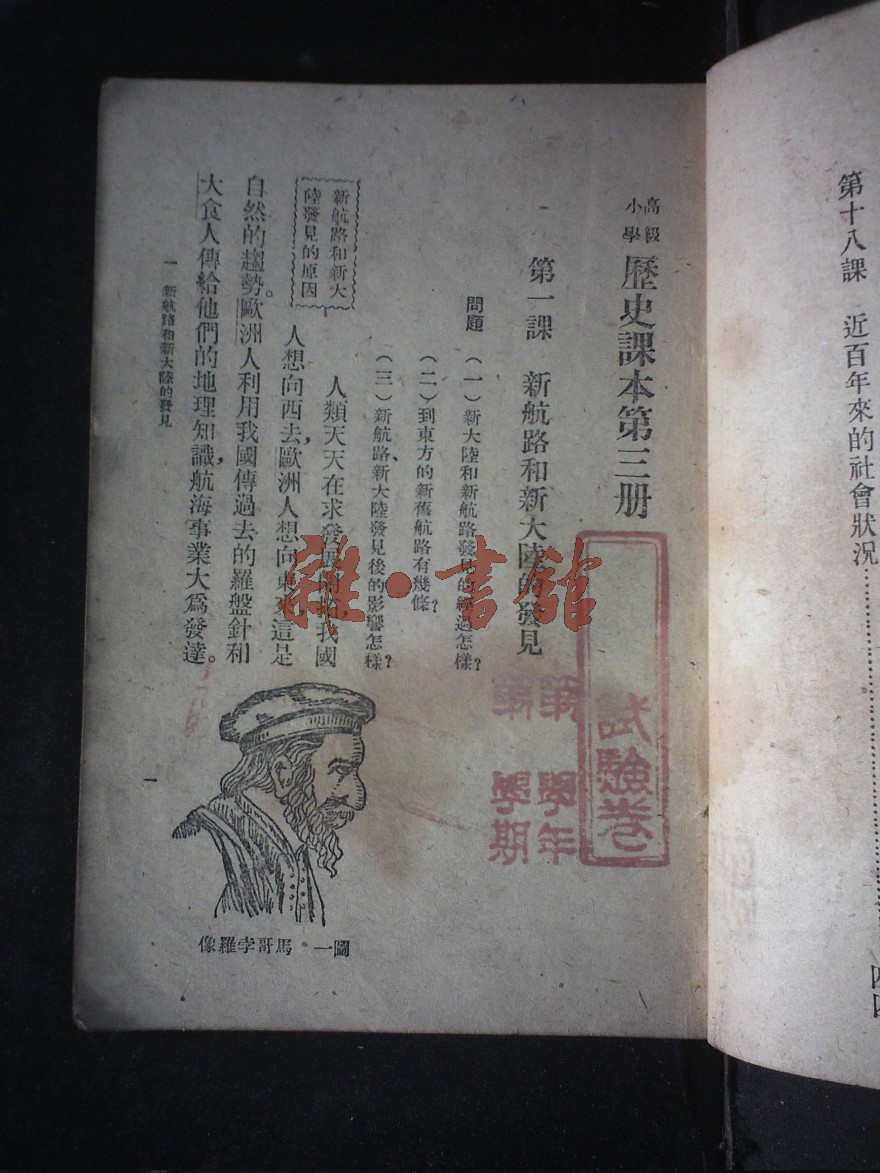 第十八課　近百年來的社會狀況
高級
小學
歷史課本第三册
第一課　新航路和新大陸的發見
問題　(一)新大陸和新航路發見的經過怎樣?
(二)到東方的新舊航路有幾條?
(三)新航路、新大陸發見後的影響怎樣?
新航路和新大
陸發見的原因
人類天天在求發展開拓,我國
人想向西去,歐洲人想向東來,這是
自然的趨勢。歐洲人利用我國傳過去的羅盤針和
大食人傳給他們的地理知識,航海事業大爲發達。
圖一　馬哥孛羅像
一　新航路和新大陸的發見
一
試驗卷
第　學年
第　學期
雜·書館